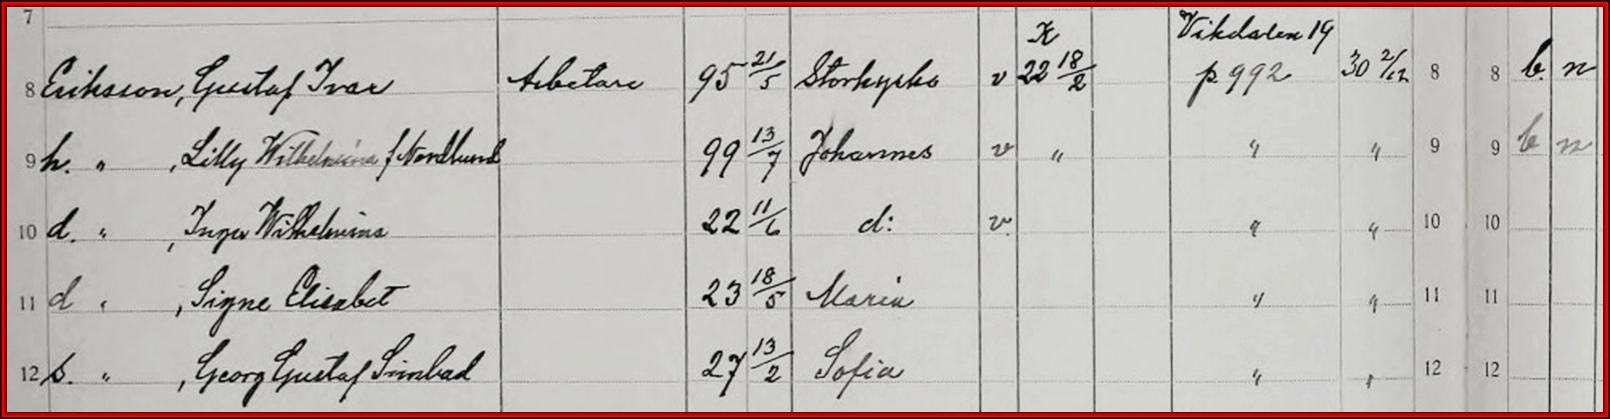 7
K Vikdalen 19
8 Eriksson, Gustaf Ivar Arbetare 95 21/5 Storkyrko v 22 18/2 p 992 30 2/12 8 8 b. n
9 h. " , Lilly Wilhelmina f Nordlund 99 13/7 Johannes v " " " 9 9 b n
10 d. " , Inga Wilhelmina 22 11/6 d: v. " " 10 10
11 d " , Signe Elisabet 23 18/5 Maria " " 11 11
12 s. " , Georg Gustaf Simbad 27 13/2 Sofia " " 12 12